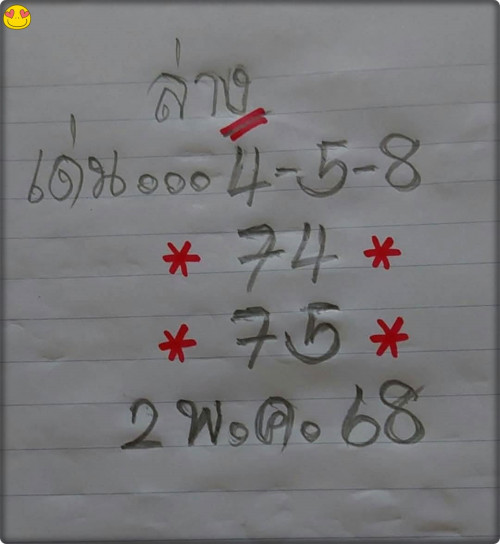 ล่าง
เด่น...4-5-8
* 74 *
* 75 *
2 พ.ค. 68